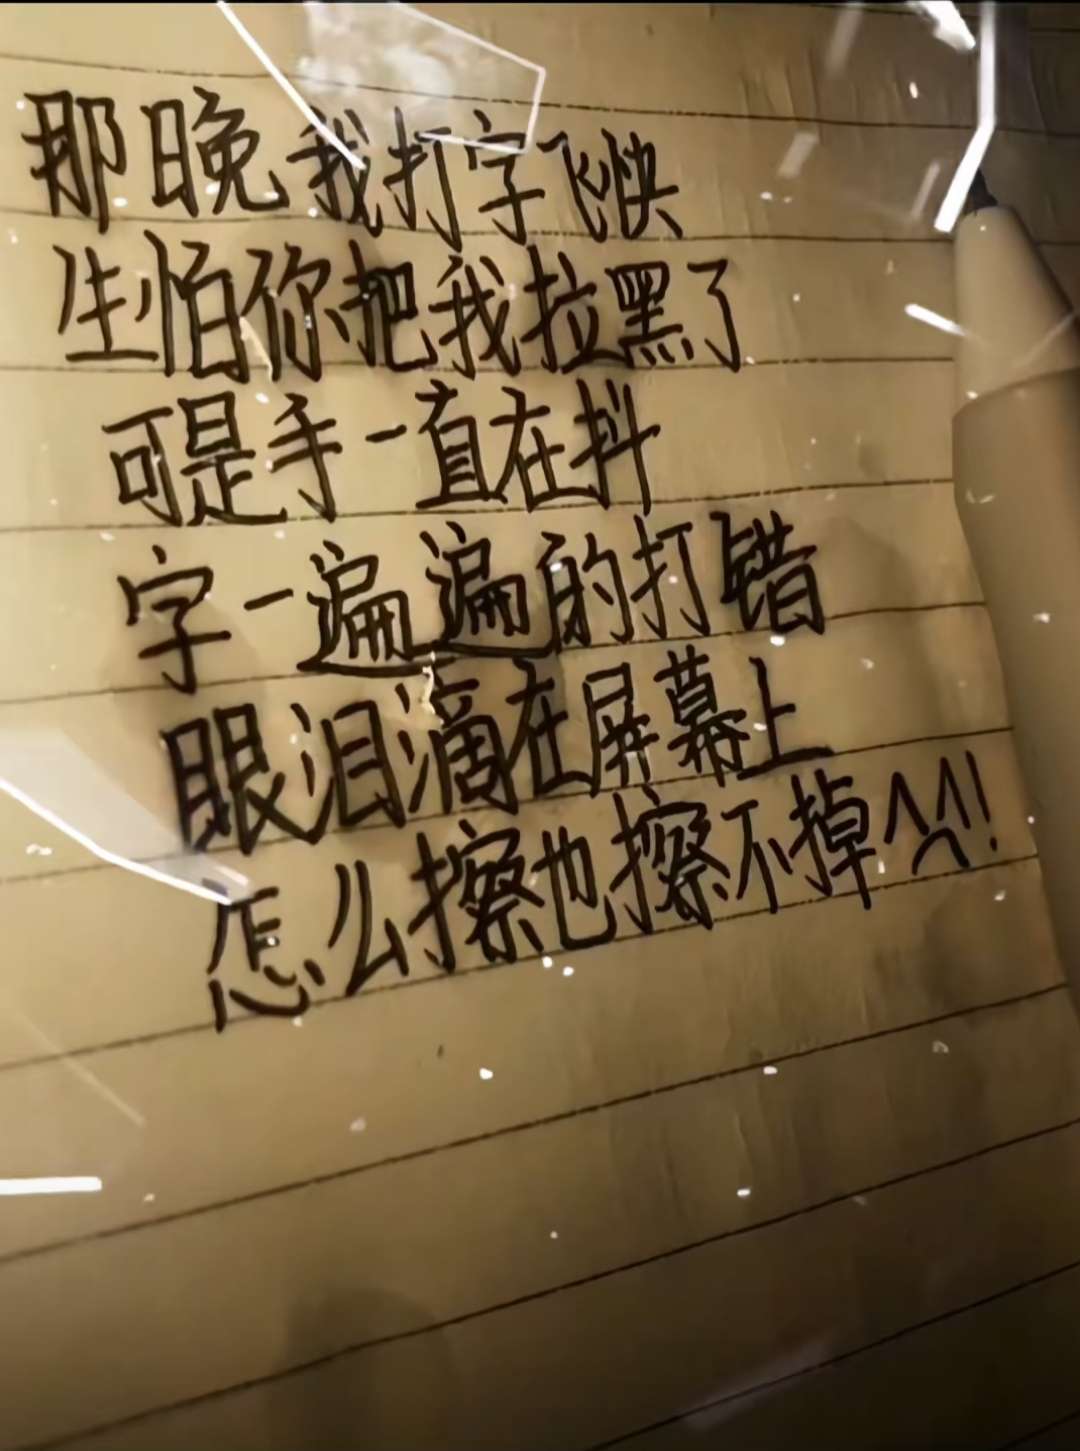 那晚我打字飞快
生怕你把我拉黑了
可是手一直在抖
字一遍遍的打错
眼泪滴在屏幕上
怎么擦也擦不掉^^!